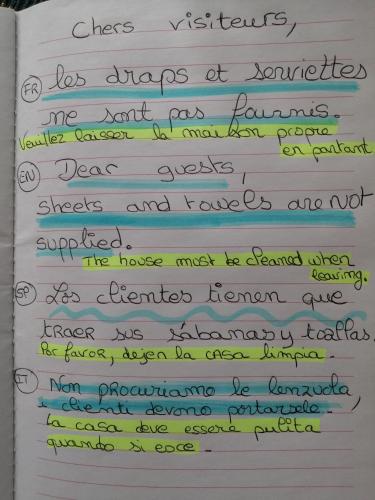 Chers visiteurs,
FR les draps et serviettes
ne sont pas fournis.
Veuillez laisser la maison propre
en partant
EN Dear guests,
sheets and towels are not
supplied.
The house must be cleaned when
leaving.
SP Los clientes tienen que
traer sus sábanas y toallas.
Por favor, dejen la casa limpia.
IT Non procuriamo le lenzuola,
i clienti devono portarsele.
La casa deve essere pulita
quando si esce.